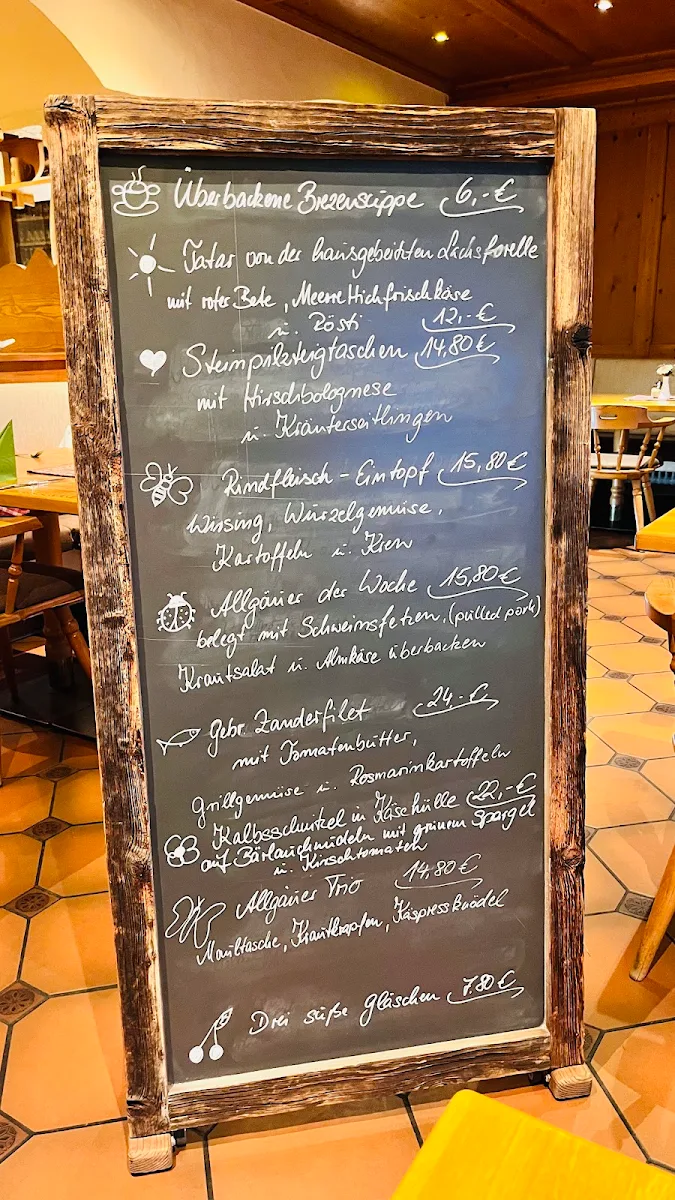 Überbackene Brezensuppe 6,-€
Tatar von der hausgebeizten Lachsforelle
mit roter Bete, Meerrettichfrischkäse
u. Rösti 12,-€
Steinpilzteigtaschen 14,80€
mit Hirschbolognese
u. Kräuterseitlingen
Rindfleisch-Eintopf 15,80€
Wirsing, Wurzelgemüse,
Kartoffeln u. Kren
Allgäuer der Woche 15,80€
belegt mit Schweinsfetzen, (pulled pork)
Krautsalat u. Almkäse überbacken
Gebr. Zanderfilet 24,-€
mit Tomatenbutter,
Grillgemüse u. Rosmarinkartoffeln
Kalbsschnitzel in Käsehülle 22,-€
auf Bärlauchnudeln mit grünem Spargel
u. Kirschtomaten
Allgäuer Trio 14,80€
Maultasche, Krautkrapfen, Käspressknödel
Drei süße Gläschen 7,80€